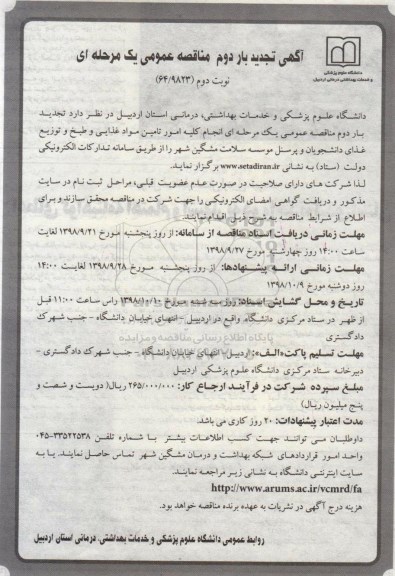 آگهی تجدید بار دوم مناقصه عمومی یک مرحله ای
نوبت دوم (۶۴/۹۸۲۳)
دانشگاه علوم پزشکی
و خدمات بهداشتی درمانی اردبیل
دانشگاه علوم پزشکی و خدمات بهداشتی، درمانی استان اردبیل در نظر دارد تجدید
بار دوم مناقصه عمومی یک مرحله ای انجام کلیه امور تامین مواد غذایی و طبخ و توزیع
غذای دانشجویان و پرسنل موسسه سلامت مشگین شهر را از طریق سامانه تدارکات الکترونیکی
دولت (ستاد) به نشانی www.setadiran.ir برگزار نماید.
لذا شرکت های دارای صلاحیت در صورت عدم عضویت قبلی، مراحل ثبت نام در سایت
مذکور و دریافت گواهی امضای الکترونیکی را جهت شرکت در مناقصه محقق سازند و برای
اطلاع از شرایط مناقصه به شرح ذیل اقدام نمایند.
مهلت زمانی دریافت اسناد مناقصه از سامانه: از روز پنجشنبه مورخ ۱۳۹۸/۹/۲۱ لغایت
ساعت ۱۴:۰۰ روز چهارشنبه مورخ ۱۳۹۸/۹/۲۷
مهلت زمانی ارائه پیشنهادها: از روز پنجشنبه مورخ ۱۳۹۸/۹/۲۸ لغایت ۱۴:۰۰
روز دوشنبه مورخ ۱۳۹۸/۱۰/۹
تاریخ و محل گشایش اسناد: روز سه شنبه مورخ ۱۳۹۸/۱۰/۱۰ راس ساعت ۱۱:۰۰ قبل
از ظهر در ستاد مرکزی دانشگاه واقع در اردبیل - انتهای خیابان دانشگاه - جنب شهرک
دادگستری
مهلت تسلیم پاکت «الف»: اردبیل- انتهای خیابان دانشگاه - جنب شهرک دادگستری -
دبیرخانه ستاد مرکزی دانشگاه علوم پزشکی اردبیل
مبلغ سپرده شرکت در فرآیند ارجاع کار: ۲۶۵/۰۰۰/۰۰۰ ریال( دویست و شصت و
پنج میلیون ریال)
مدت اعتبار پیشنهادات: ۲۰ روز کاری می باشد.
داوطلبان می توانند جهت کسب اطلاعات بیشتر با شماره تلفن ۳۳۵۲۲۵۳۸-۰۴۵
واحد امور قراردادهای شبکه بهداشت و درمان مشگین شهر تماس حاصل نمایند. یا به
سایت اینترنتی دانشگاه به نشانی زیر مراجعه نمایند.
http://www.arums.ac.ir/vcmrd/fa
هزینه درج آگهی در نشریات به عهده برنده مناقصه خواهد بود.
روابط عمومی دانشگاه علوم پزشکی و خدمات بهداشتی، درمانی استان اردبیل